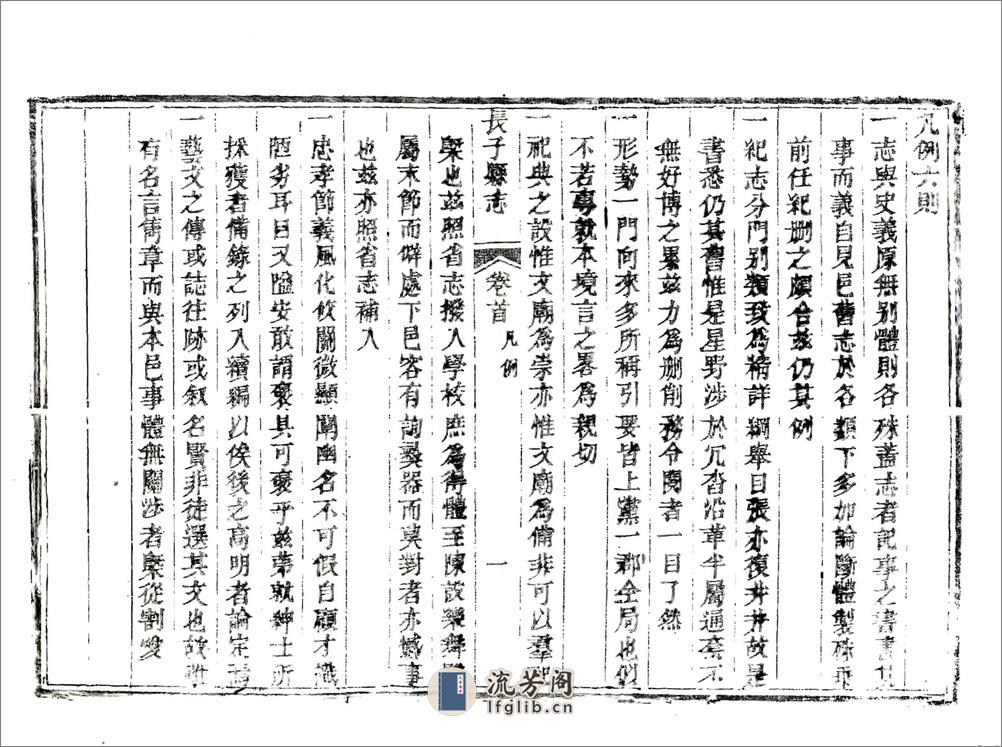 凡例六則
一志與史義原無別體則各殊蓋志者記事之書書其
事而義自見邑舊志於各類下多加論斷體製殊乖
前任紀刪之頗合茲仍其例
一紀志分門別類致為精詳綱舉目張亦復井井故是
書悉仍其舊惟是星野涉於冗沓沿革半屬通套不
無好博之累茲力為刪削務令閱者一目了然
一形勢一門向來多所稱引要皆上黨一郡全局也似
不若專就本境言之畧為親切
一祀典之設惟文廟為崇亦惟文廟為備非可以羣祀
長子縣志
卷首
凡例
一
槩也茲照省志撥入學校庶為得體至陳設樂舞
屬末節而僻處下邑客有詢彝器而莫對者亦憾事
也茲亦照省志補入
一忠孝節義風化攸關微顯闡幽名不可假自顧才識
陋劣耳目又隘安敢謂褒其可褒乎茲第就紳士所
採獲者備錄之列入續編以俟後之高明者論定焉
一藝文之傳或誌往跡或叙名賢非徒選其文也故雖
有名言雋章而與本邑事體無關涉者槩從割愛
流芳阁
lfglib.cn